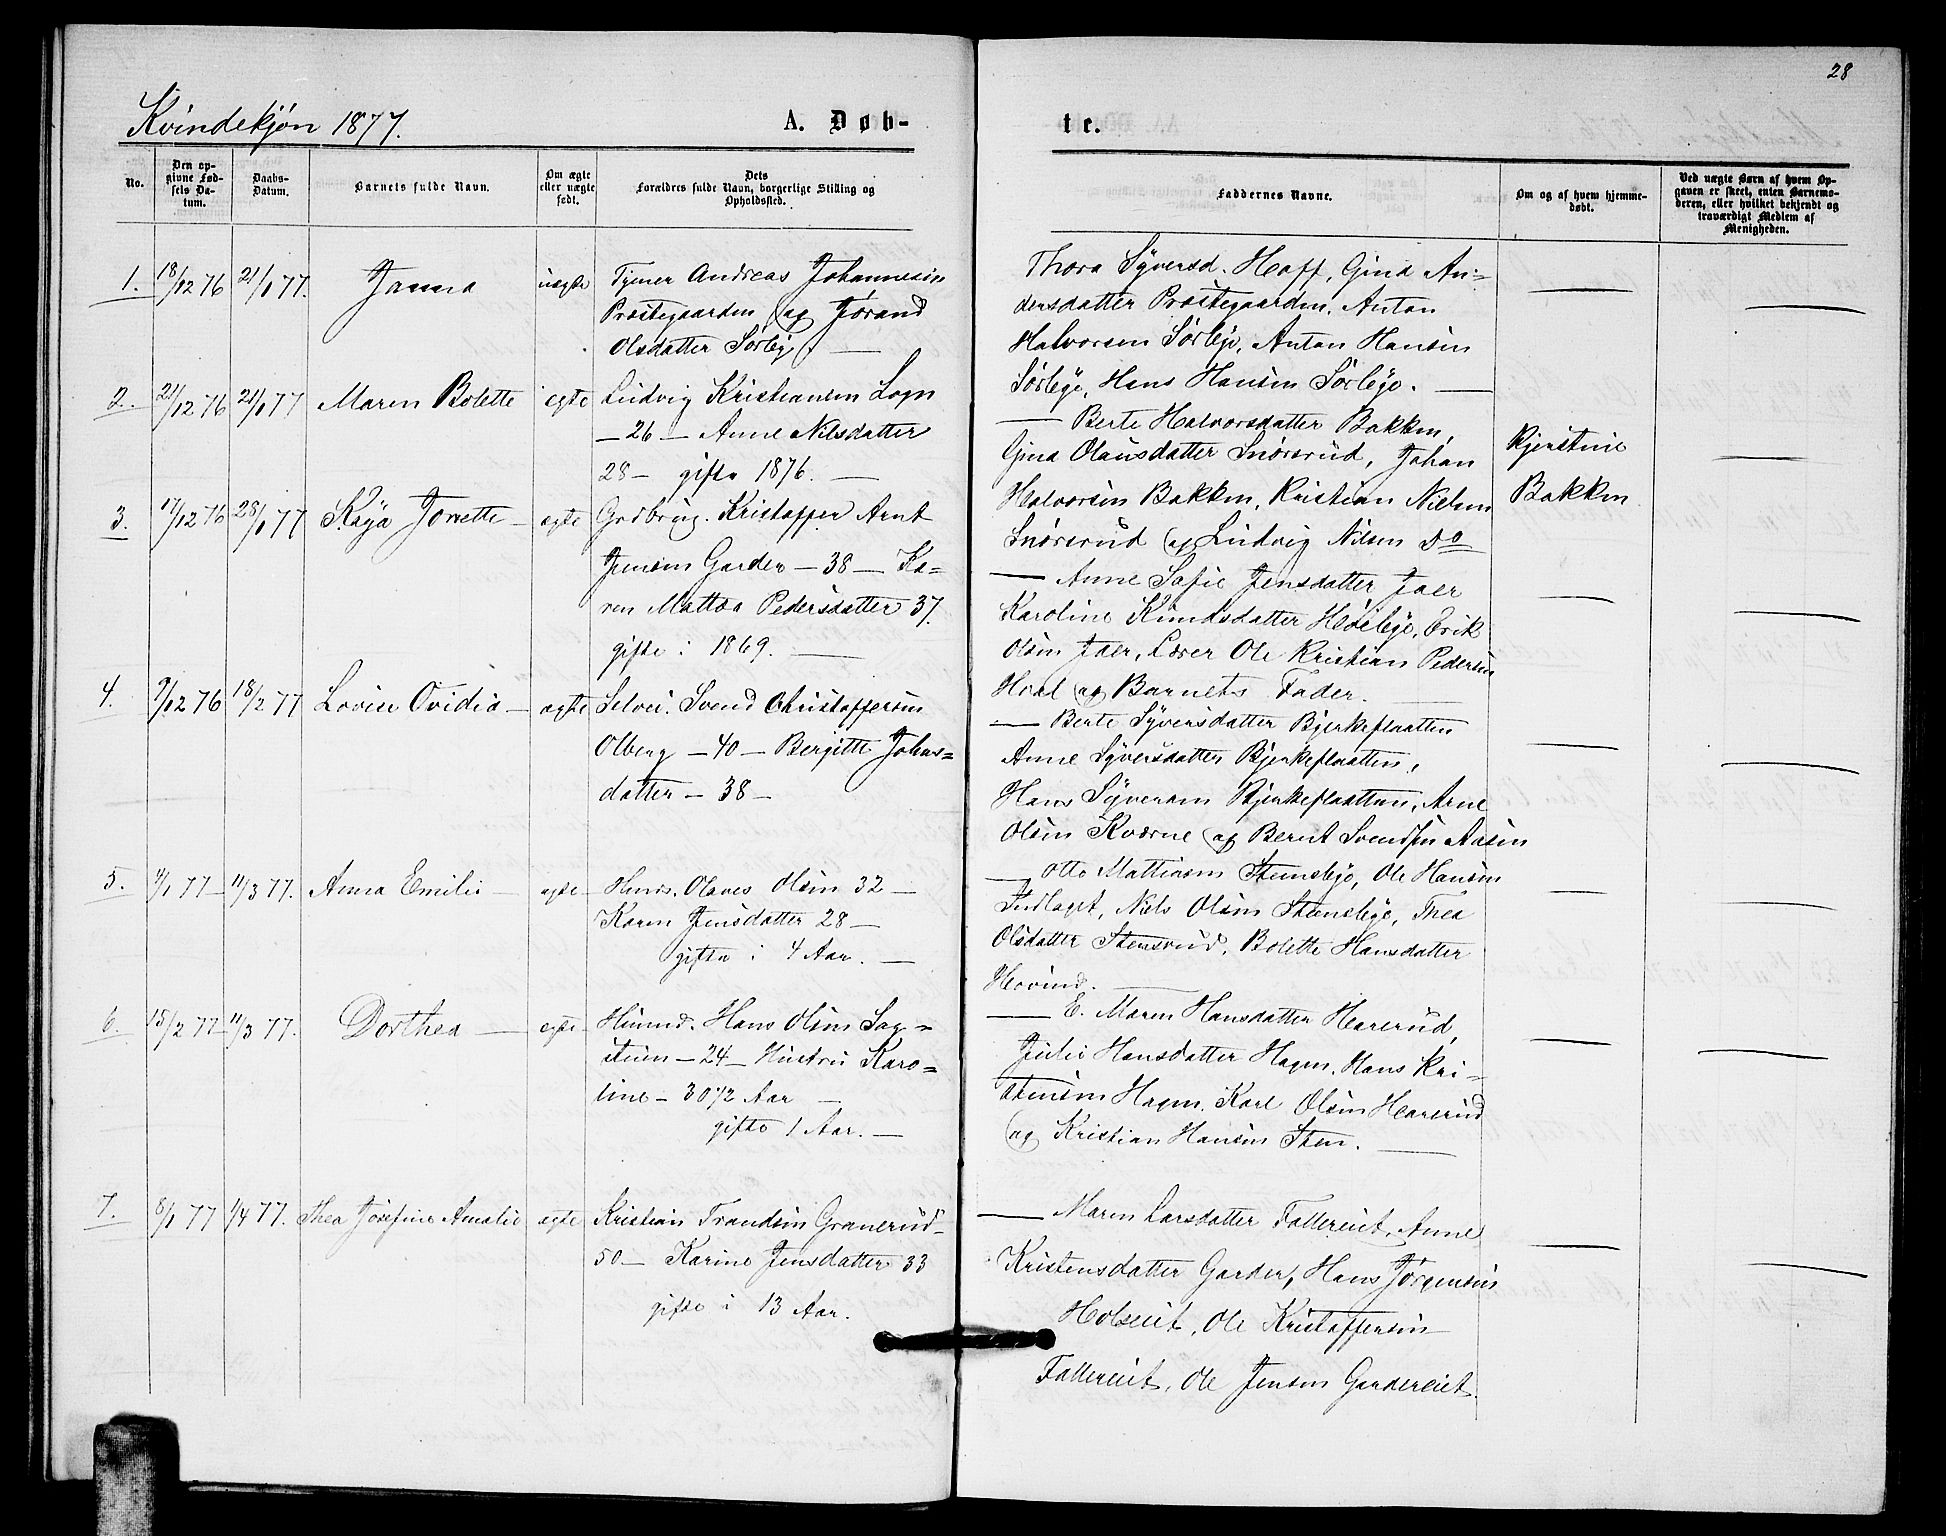 28
Kvindekjøn 1877.
A. Døb-
te.
No.
Den op-
givne Fød-
sels Da-
tum.
Daabs-
Datum.
Barnets fulde Navn.
Om ægte
eller uægte
født.
Dets
Forældres fulde Navn, borgerlige Stilling og
Opholdssted.
Faddernes Navne.
Om og af hvem hjemme-
døbt.
Ved uægte Børn af hvem Op-
gaven er skeet, enten Barnemo-
deren, eller hvilket bekjendt og
troværdigt Medlem af
Menigheden.
1. 18/12 76 21/1 77. uægte Andreas Johannesen
Præstegaarden og Jørand
Olsdatter Sørby. —
Thora Syversd. Hoff, Gina An-
dersdatter Præstegaarden, Anton
Halvorsen Sørbye, Anton Hansen
Sørbye, Hans Hansen Sørbye. —
2. 21/12 76 21/1 77 Maren Bolette ægte Ludvig Kristiansen Logn
— 26 — Anne Nilsdatter
28 — gifte 1876. —
— Berte Halvorsdatter Bakken,
Gina Olausdatter Snørsrud, Johan
Halvorsen Bakken, Kristian Nielsen
Snørsrud og Ludvig Nilsen Do
Kjerstine
Bakken
3. 17/12 76 28/1 77 Kaja Jonette — ægte Grdbrug. Kristoffer Arnt
Jensen Garder — 38 — Ka-
ren Mattea Pedersdatter 37.
gifte i 1869. —
— Anne Sofie Jensdatter Jaer
Karoline Knudsdatter Hedebye, Erik
Olsen Jaer, Lærer Ole Kristian Pedersen
Hval og Barnets Fader. —
4. 9/12 76 18/2 77 Lovise Ovidia — ægte Selvei. Svend Christoffersen
Olberg — 40 — Bergitte Johns-
datter — 38 —
— Berte Syversdatter Bjerkeflaatten
Anne Syversdatter Bjerkeflaatten,
Hans Syversen Bjerkeflaatten, Arne
Olsen Kværne og Bernt Svendsen Aasen
5. 4/1 77 — 11/3 77. Anna Emilie — ægte Olaves Olsen 32 —
Karen Jensdatter 28 —
gifte i 4 Aar. —
— Otto Mattiasen Stensbye, Ole Hansen
Indlaget, Niels Olsen Stensbye, Thea
Olsdatter Stensrud, Bolette Hansdatter
Hovind. —
6. 15/2 77 11/3 77. Dorthea — ægte Husmd. Hans Olsen Sag-
stuen — 24 — Hustru Karo-
line — 30 1/2 Aar —
gifte 1 Aar. —
— E. Maren Hansdatter Harerud,
Julie Hansdatter Hagen, Hans Kri-
stensen Hagen, Karl Olsen Harerud
og Kristian Hansen Sten. —
7. 8/1 77 1/4 77. Thea Josefine Amalie ægte Kristian Trandsen Granerud
50 — Karine Jensdatter 33
gifte i 13 Aar.
— Maren Larsdatter Fallereiet, Anne
Kristensdatter Garder, Hans Jørgensen
Holseiet, Ole Kristoffersen
Fallereiet, Ole Jensen Gardereiet.